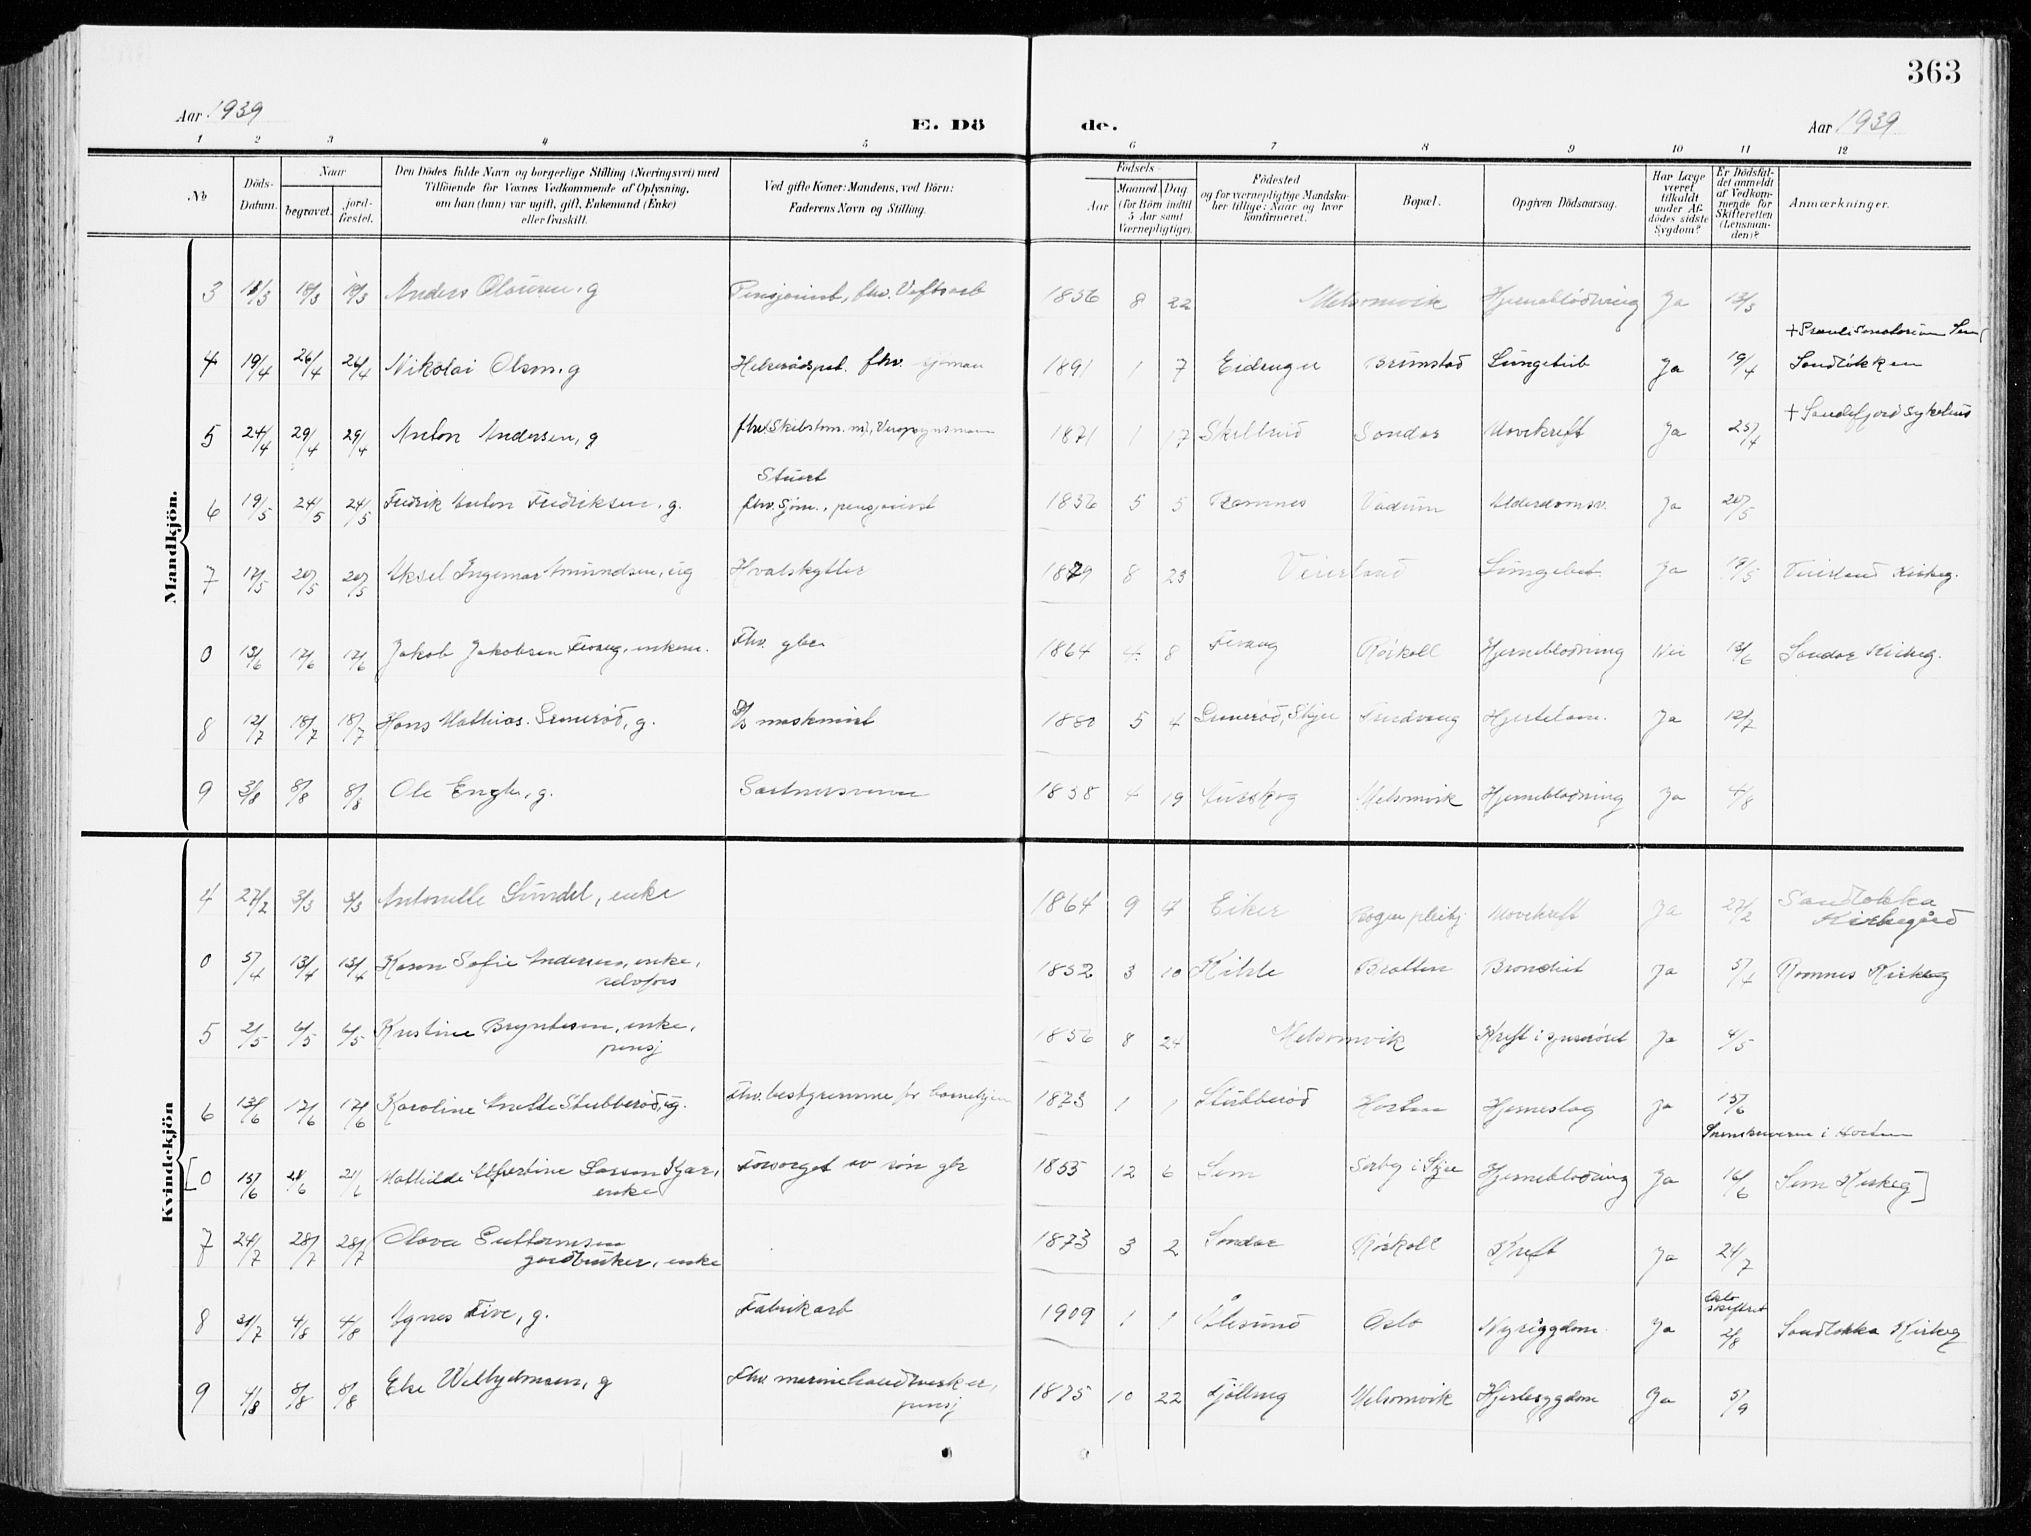 363
Aar 1939
E. Dö
de.
Aar 1939
1 2 3 4 5 6 7 8 9 10 11 12
No
Döds-Datum.
Naar
begravet.
jord-fæstet.
Den Dödes fulde Navn og borgerlige Stilling (Næringsvei) med
Tilföiende for Voxnes Vedkommende af Oplysning,
om han (hun) var ugift, gift, Enkemand (Enke)
eller fraskilt.
Ved gifte Koner: Mandens, ved Börn:
Faderens Navn og Stilling.
Födsels-
Aar
Maaned. Dag
(for Börn indtil
5 Aar samt
Værnepligtige).
Födested
og for værnepligtige Mandska-
ber tillige: Naar og hvor
konfirmeret.
Bopæl.
Opgiven Dödsaarsag.
Har Læge
været
tilkaldt
under Af-
dödes sidste
Sygdom?
Er Dödsfal-
det anmeldt
af Vedkom-
mende for
Skifteretten
(Lensman-
den)?
Anmærkninger.
Mandkjön.
3 18/3 18/3 Anders Olsen, g Pensjonist, fhv. 1856 8 22 Melsomvik Hjerneblödning Ja 13/3
4 19/4 26/4 26/4 Nikolai Olsen, g fhv. sjöman 1891 1 7 Eidanger Brunstad Lungetub Ja 19/4 Sandløkken
5 24/4 29/4 29/4 Anton Andersen, g 1871 1 17 Sandar Mavekreft Ja 25/4 + Sandefjord sykehus
Stuert
6 19/5 24/5 24/5 Fredrik Anton Fredriksen, g. fhv. Sjöm., pensjonist 1856 5 5 Framnes Vadum Alderdomsv. Ja 20/5
7 17/5 20/5 20/5 Aksel Ingemar Amundsen, ug Hvalskytter 1879 8 23 Veierland Ja 19/5 Veierland Kirkeg.
0 13/6 17/6 17/6 Jakob Jakobsen Fevang, enkem. Fhv. gbr 1864 4 8 Fevang Råskoll Hjerneblødning Nei 13/6 Sandar Kirkeg.
8 12/7 18/7 18/7 Hans Mathias Lemerød, g. maskinist 1880 5 4 Lemerød, Skjee Hjertelam. Ja 12/7
9 3/8 8/8 8/8 Ole Engh, g. 1858 4 19 Aurskog Melsomvik Hjerneblødning Ja 4/8
Kvindekjön
4 27/2 3/3 3/3 Antonette Lundel, enke 1864 9 7 Eiker Mavekreft Ja 27/2 Sandløkka Kirkegård
0 5/4 13/4 13/4 Karen Sofie Andersen, enke, selvfors 1852 3 10 Bratten Bronchit Ja 5/4 Ramnes Kirkeg
5 2/5 6/5 6/5 Kristine Bryntesen, enke, pensj 1856 8 24 Melsomvik Kreft i spiserøret Ja 4/5
6 13/6 17/6 17/6 Karoline Anette Stubberød, ug. Fhv. bestyrerinne for barnehjem 1873 1 1 Stubberød Horten Hjerneslag Ja 15/6
i Horten
[0 15/6 21/6 21/6 Mathilde Albertine Larsen Gjar, enke Forsørget av søn gbr 1855 12 6 Sem Sørby i Skjee Hjerneblødning Ja 16/6 Sem Kirkeg]
7 24/7 28/7 28/7 Olava Guttormsen gardbruker, enke 1873 3 2 Sandar Råskoll Kreft Ja 24/7
8 31/7 4/8 4/8 Agnes Five, g. Fabrikarb 1909 1 1 Ålesund Oslo Nyresygdom Ja Oslo skifteret 2/8 Sandløkka Kirkeg
9 4/8 8/8 8/8 Else Wilhjelmsen, g Fhv. marinehåndverker, pensj 1875 10 22 Tjølling Melsomvik Hjertesygdom Ja 5/9